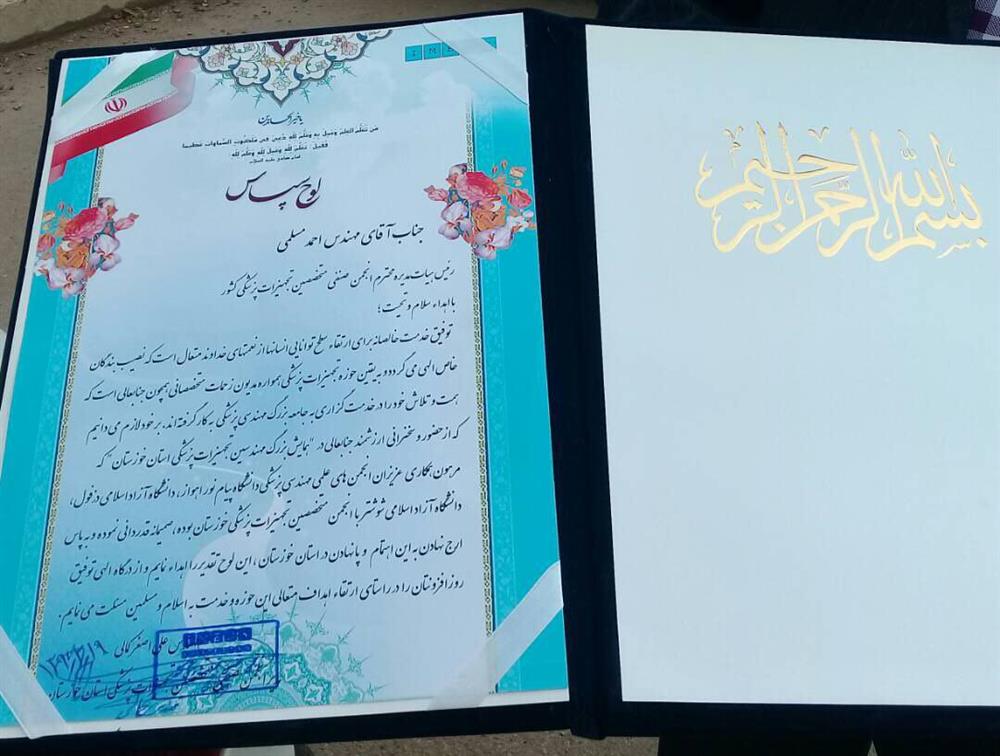 لوح سپاس
جناب آقای مهندس احمد مسلمی
رئیس هیات مدیره محترم انجمن صنفی متخصصین تجهیزات پزشکی کشور
با اهداء سلام و تحیت؛
توفیق خدمت خالصانه برای ارتقاء سطح توانایی انسانها از نعمتهای خداوند متعال است که نصیب بندگان
خاص الهی می گردد و به یقین حوزه تجهیزات پزشکی همواره مدیون زحمات متخصصانی همچون جنابعالی است که
همت و تلاش خود را در خدمت گزاری به جامعه بزرگ مهندسی پزشکی به کار گرفته اند. بر خود لازم می دانیم
که از حضور و سخنرانی ارزشمند جنابعالی در "همایش بزرگ مهندسین تجهیزات پزشکی استان خوزستان" که
مرهون همکاری عزیزان انجمن های علمی مهندسی پزشکی دانشگاه پیام نور اهواز، دانشگاه آزاد اسلامی دزفول،
دانشگاه آزاد اسلامی شوشتر با انجمن متخصصین تجهیزات پزشکی خوزستان بوده، صمیمانه قدردانی نموده و به پاس
ارج نهادن به این اهتمام و پا نهادن در استان خوزستان، این لوح تقدیر را اهداء نمایم و از درگاه الهی توفیق
روز افزونتان را در راستای ارتقاء اهداف متعالی این حوزه و خدمت به اسلام و مسلمین مسئلت می نمایم.
علی اصغر کمالی
پزشکی استان خوزستان
بسم الله الرحمن الرحیم